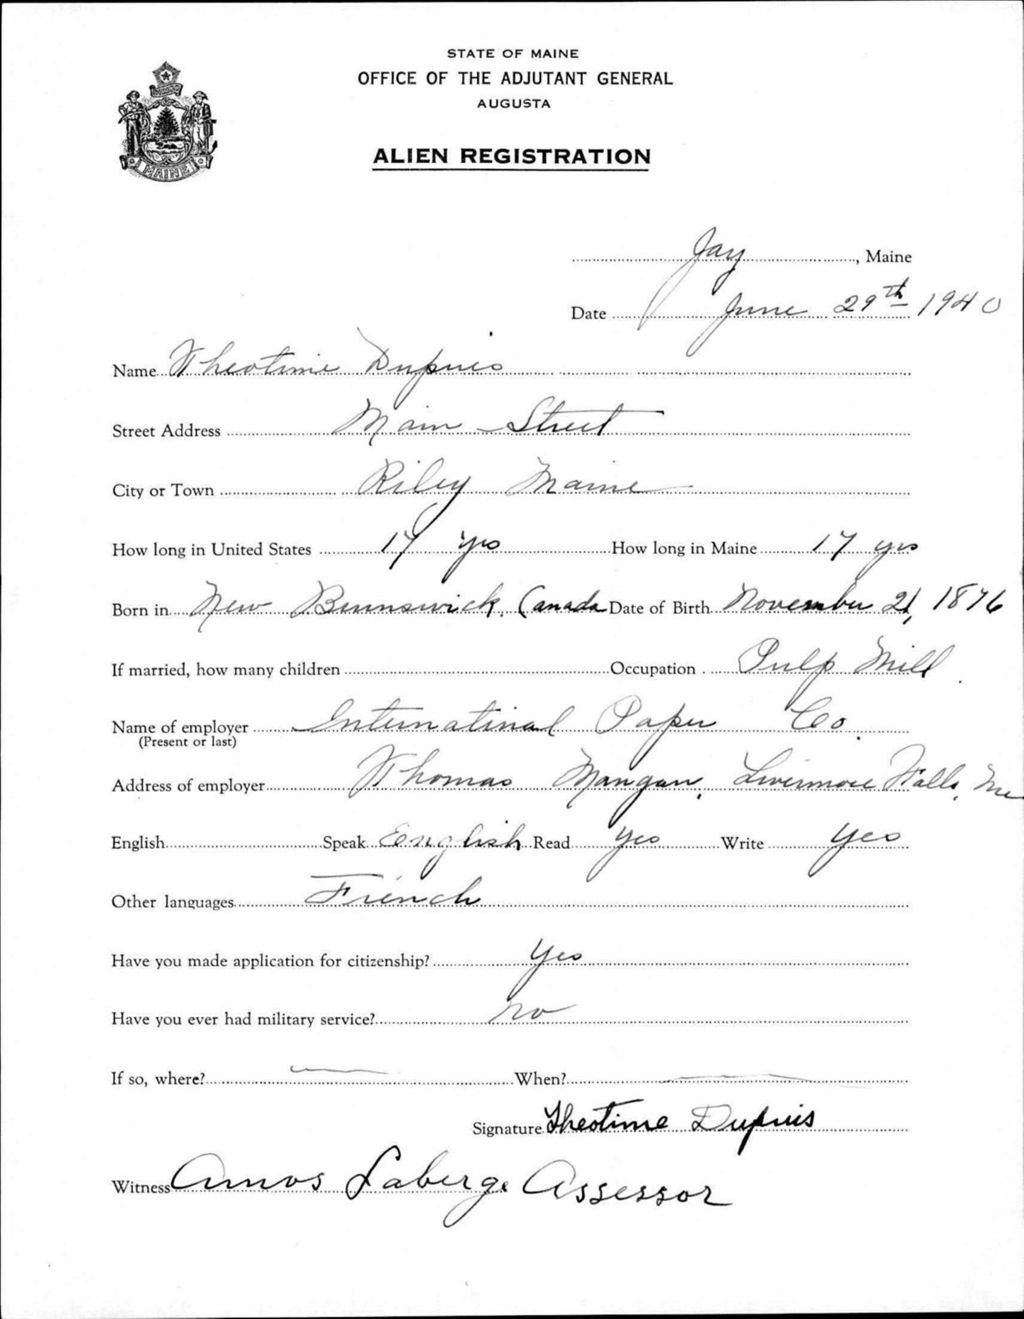 STATE OF MAINE
OFFICE OF THE ADJUTANT GENERAL
AUGUSTA
ALIEN REGISTRATION
MAINE
Jay, Maine
Date June 29th 1940
Name Theotime Dupuis
Street Address Main Street
City or Town Riley Maine
How long in United States 17 yrs How long in Maine 17 yrs
Born in New Brunswick Canada Date of Birth November 21, 1876
If married, how many children Occupation Pulp Mill
Name of employer International Paper Co.
(Present or last)
Address of employer Thomas Mangan, Livermore Falls, Me
English Speak English Read Yes Write Yes
Other languages French
Have you made application for citizenship? Yes
Have you ever had military service? no
If so, where? When?
Signature Theotime Dupuis
Witness Amos Laberge Assessor